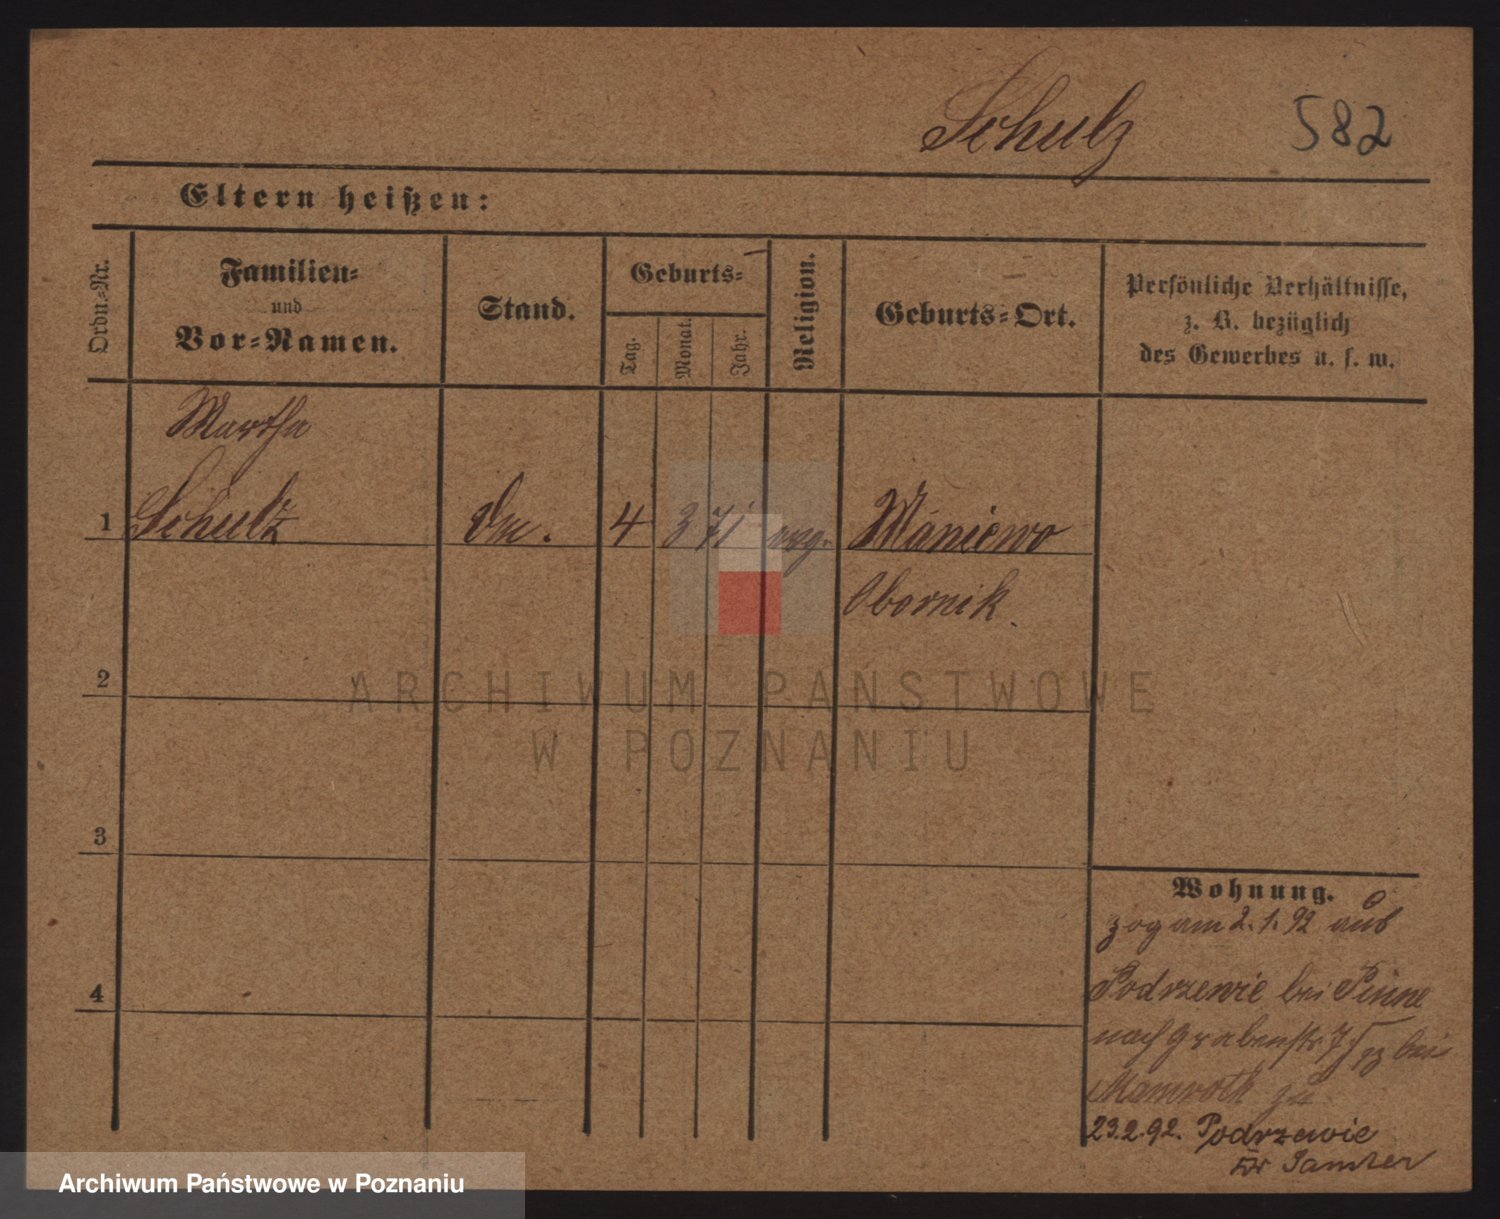 Schulz 582
Eltern heißen:
Ordn.-Nr.
Familien-
und
Vor-Namen.
Stand.
Geburts-
Tag.
Monat.
Jahr.
Religion.
Geburts-Ort.
Persönliche Verhältnisse,
z. B. bezüglich
des Gewerbes u. s. w.
Martha
1 Schulz 4 3 71 evg. Maniewo
Obornik
2
3
4
Wohnung.
zog am 2.1.92 aus
Podrzewie bei Pinne
nach Grabenstr 7 bei
Mamroth zu
23.2.92. Podrzewie
Kr Samter
ARCHIWUM PAŃSTWOWE
W POZNANIU
Archiwum Państwowe w Poznaniu